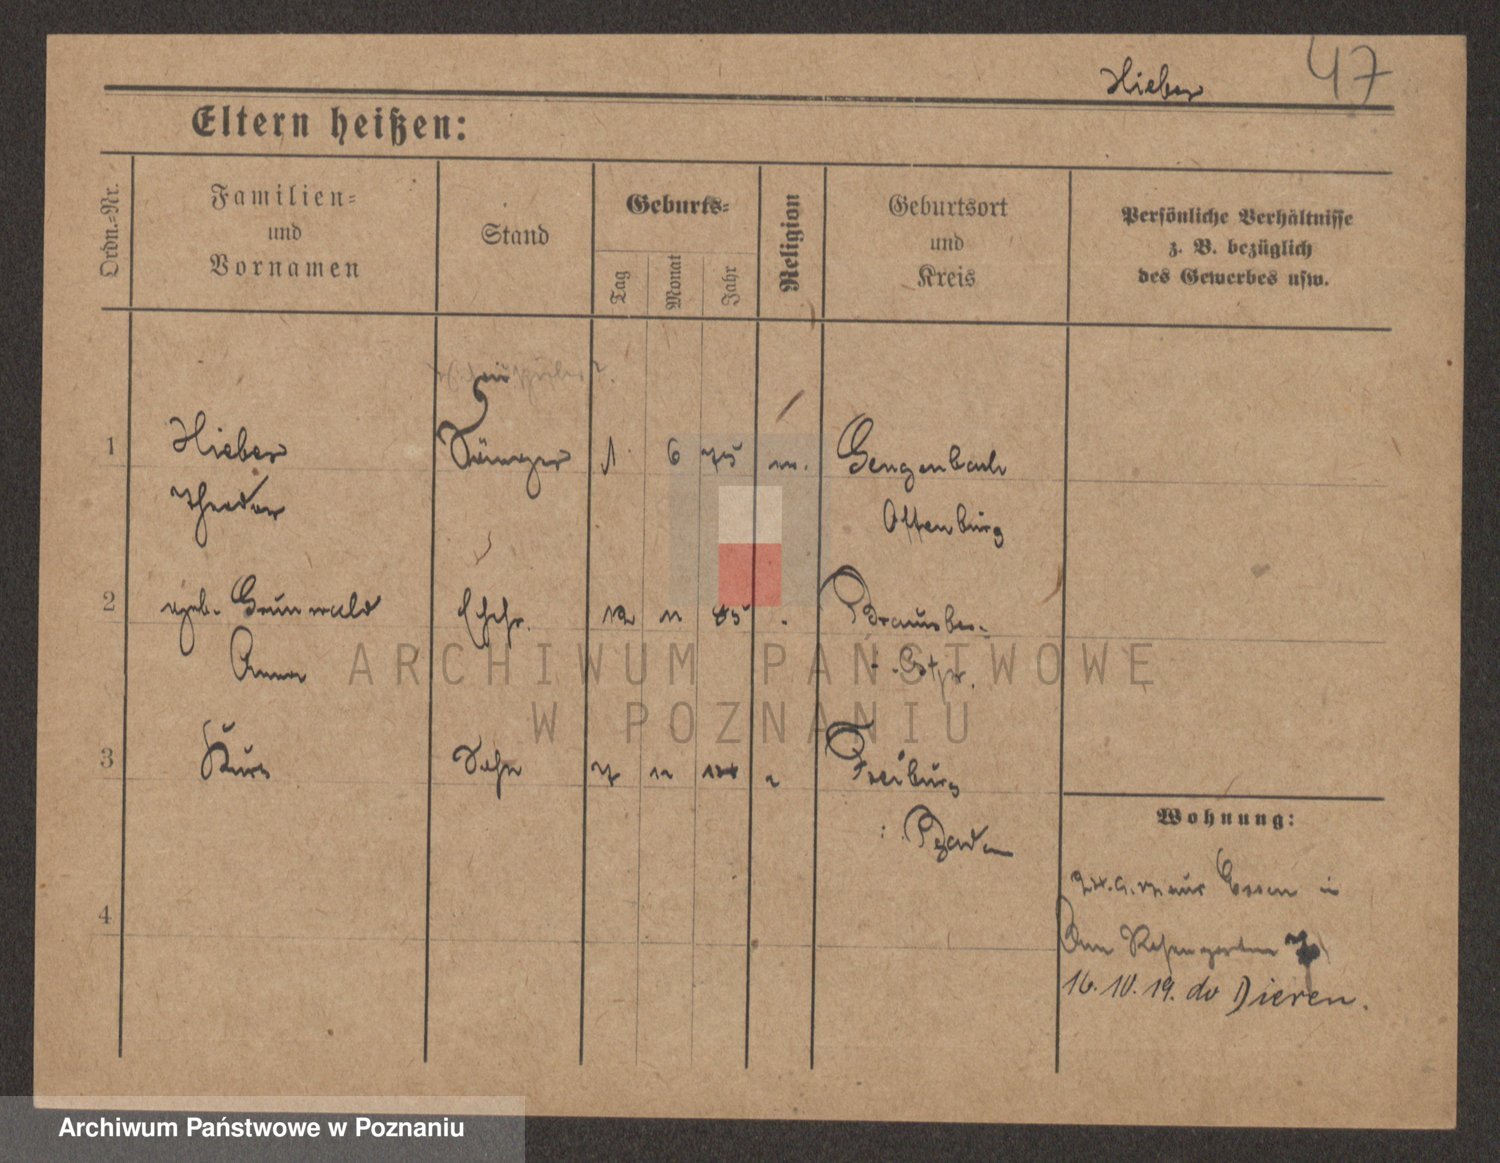 47
Hieber
Eltern heißen:
Ordn.=Nr.
Familien=
und
Vornamen
Stand
Geburts=
Tag
Monat
Jahr
Religion
Geburtsort
und
Kreis
Persönliche Verhältnisse
z. B. bezüglich
des Gewerbes usw.
1 Hieber Sänger 1 6 75 Gengenbach
Theodor Offenburg
2 geb. Grunwald Ehefr. 12 11 85 Braunsber-
Anna Ostpr.
3 Kurt Sohn 7 11 Freiburg
Baden
Wohnung:
aus Essen in
Am Rosengarten
16.10.19. do Dieren.
4
ARCHIWUM PAŃSTWOWE
W POZNANIU
Archiwum Państwowe w Poznaniu